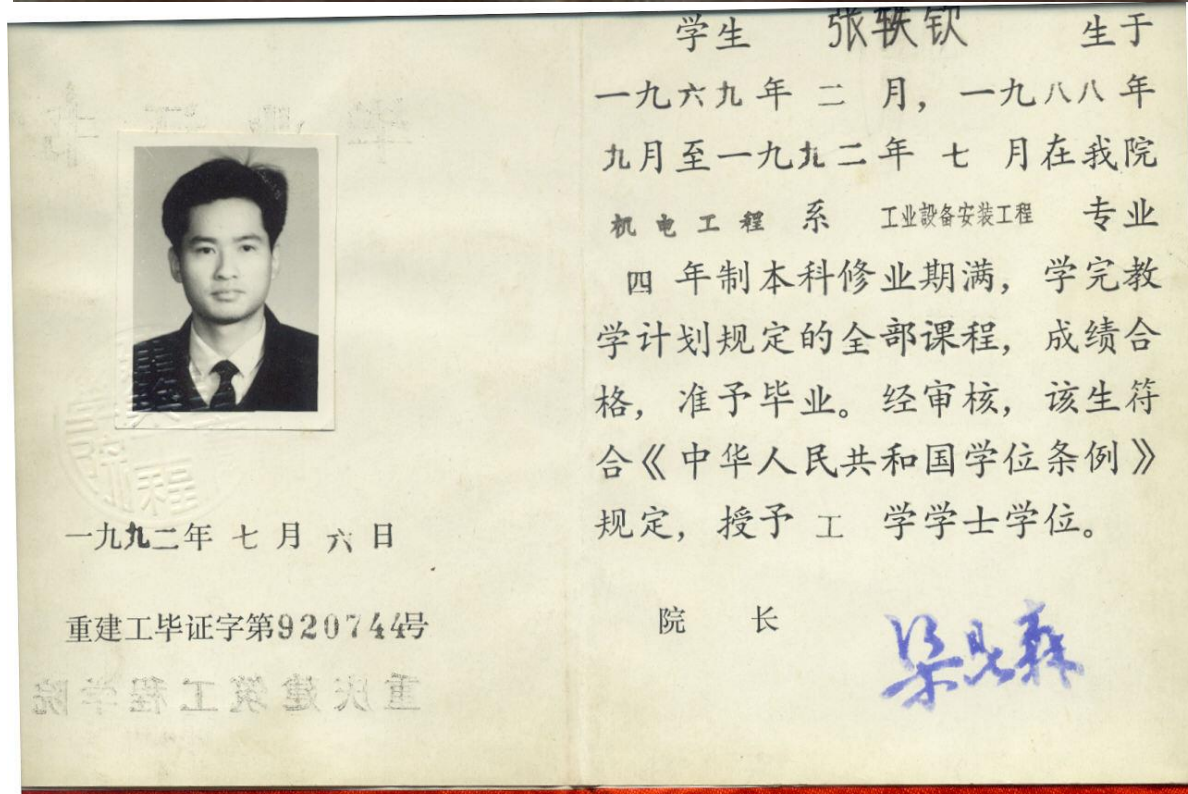 一九九二年 七 月 六 日
重建工毕证字第920744号
重庆建筑工程学院
学生 张轶钦 生于
一九六九年 二 月，一九八八年
九月至一九九二年 七 月在我院
机电工程 系 工业設备安装工程 专业
四 年制本科修业期满，学完教
学计划规定的全部课程，成绩合
格，准予毕业。经审核，该生符
合《中华人民共和国学位条例》
规定，授予 工 学学士学位。
院 长